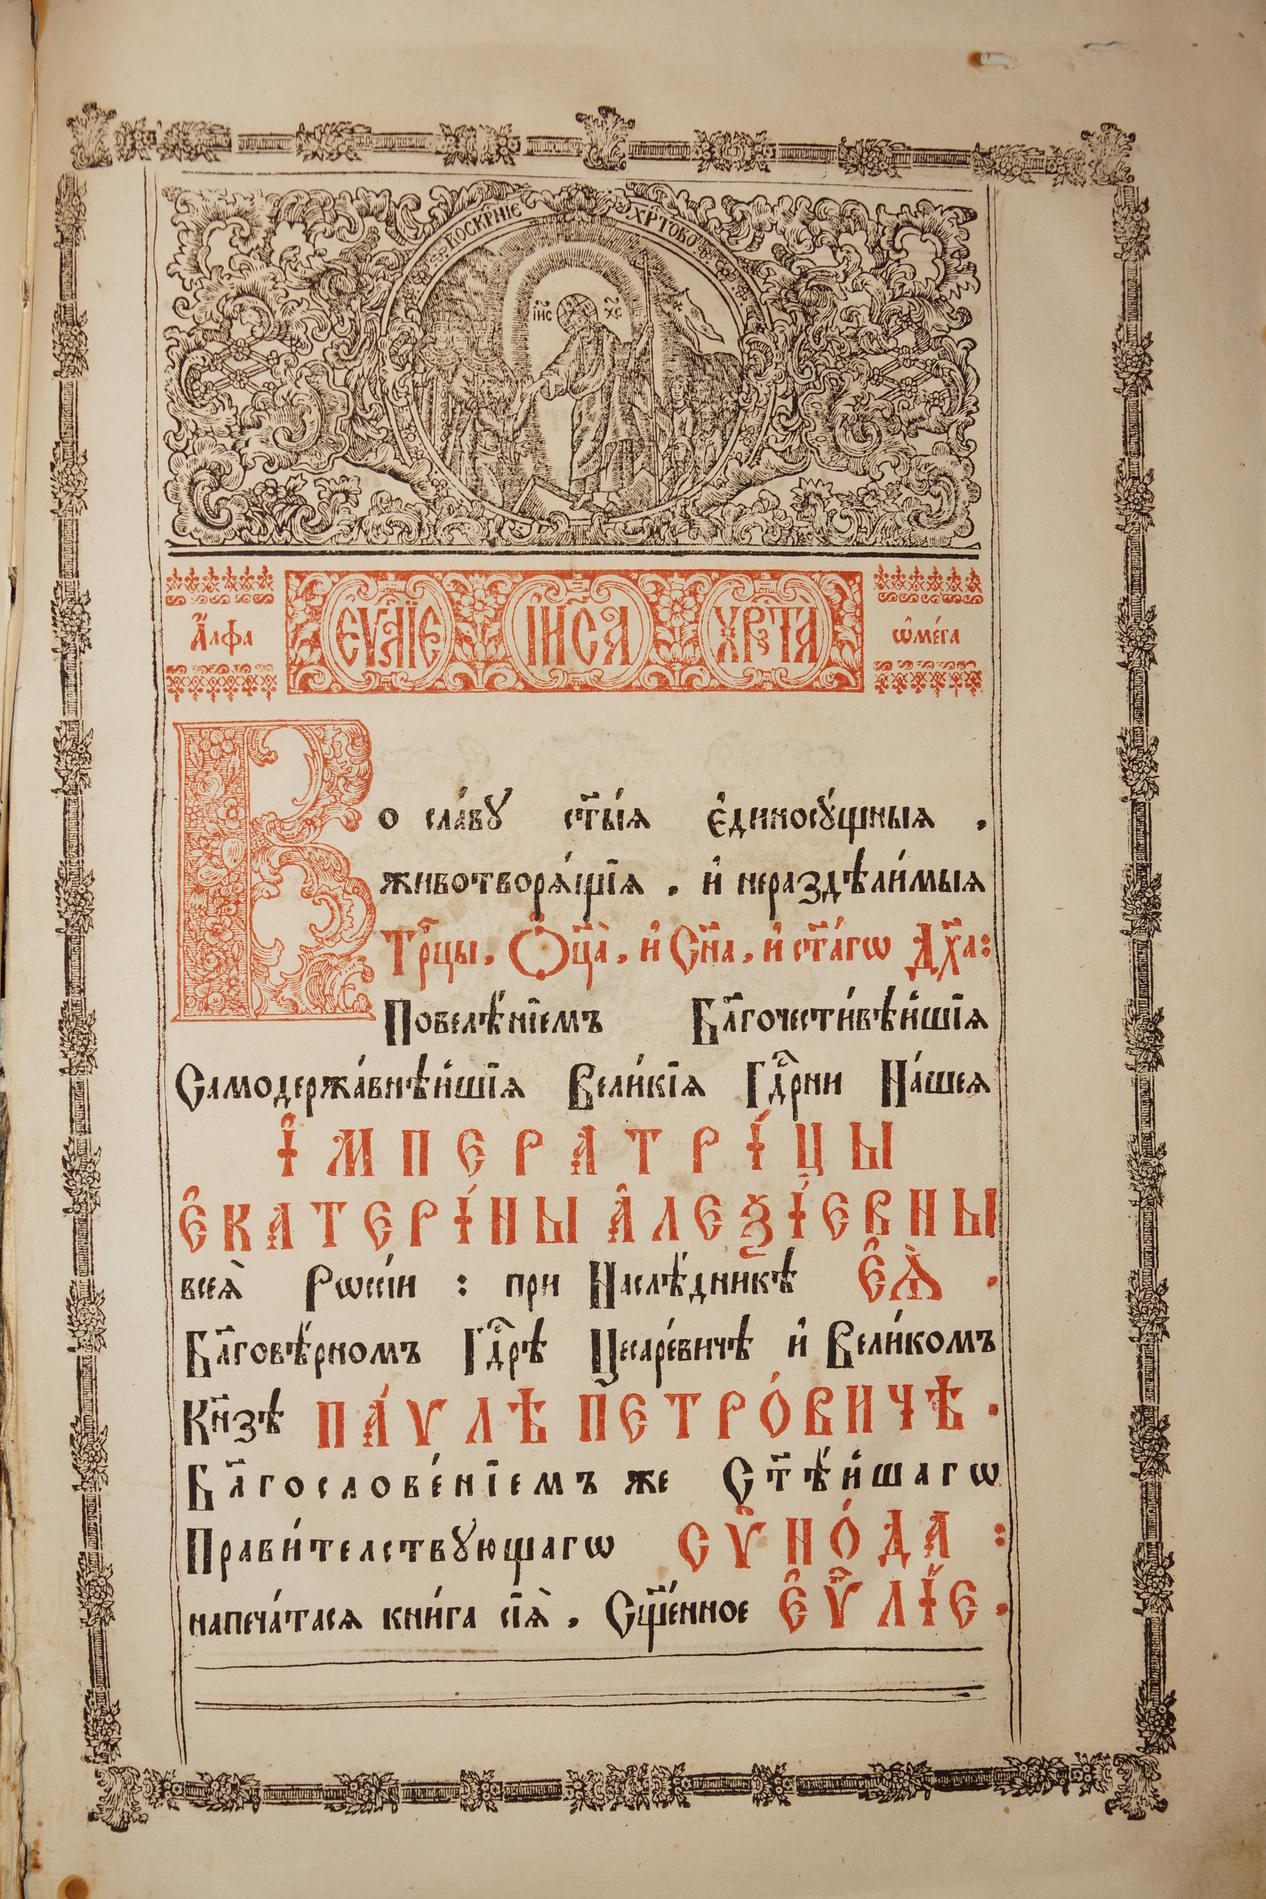 ВОСКРНІЕ ХРТОВО
І҆И҃С Х҃С
А҆́лфа ЕѴⷢ҇ЛІЕ І҆И҃СА ХРⷭ҇ТА̀ ѡ҆ме́га
Во сла́вꙋ ст҃ы́ѧ є҆диносꙋ́щныѧ ,
животворѧ́щїѧ , и҆ нераздѣли́мыѧ
Трⷪ҇цы, Ѻ҆ц҃а̀, и҆ Сн҃а, и҆ ст҃а́гѡ Дх҃а:
Повелѣ́нїемъ Бл҃гочести́вѣйшїѧ
Самодержа́внѣйшїѧ Вели́кїѧ Гдⷭ҇рни На́шеѧ
І҆МПЕРАТРІ́ЦЫ
Є҆КАТЕРІ́НЫ А҆ЛЕѮІ́ЕВНЫ
всеѧ̀ Рѡссі́и : при Наслѣ́дникѣ Є҆Ѧ̀ .
Бл҃говѣ́рномъ Гдⷭ҇рѣ Цесаре́вичѣ и҆ Вели́комъ
Кн҃зѣ ПА́ѴЛѢ ПЕТРО́ВИЧѢ .
Бл҃гослове́нїемъ же Ст҃ѣ́йшагѡ
Прави́телствꙋющагѡ СѴ҆НО́ДА :
напеча́тасѧ кни́га сїѧ̀ , Сщ҃е́нное Є҆Ѵⷢ҇ЛІЕ .